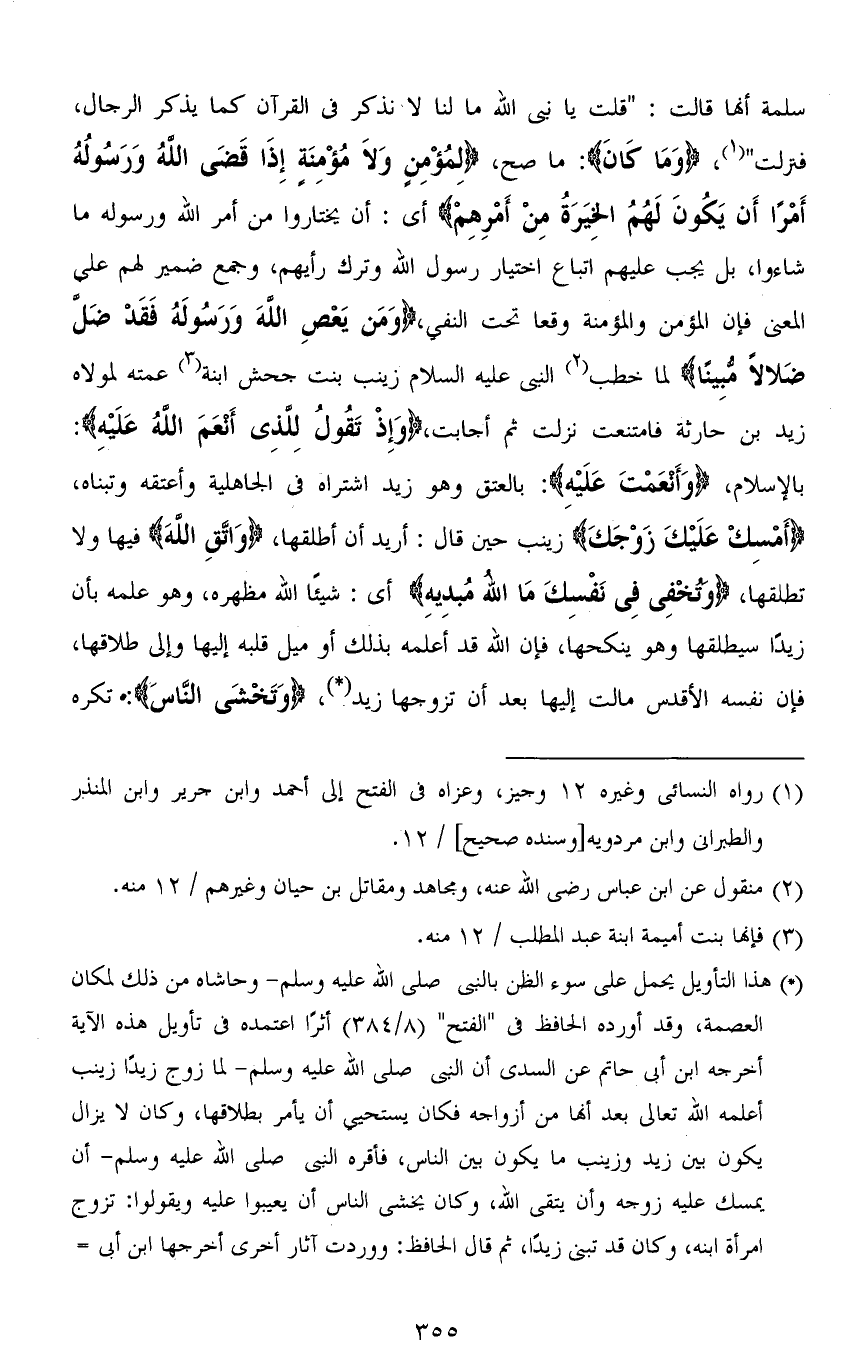 سلمة أنها قالت : "قلت يا نبى الله ما لنا لا نذكر فى القرآن كما يذكر الرجال،
فنزلت"(١)، ﴿وَمَا كَانَ﴾: ما صح، ﴿لِمُؤْمِنٍ وَلاَ مُؤْمِنَةٍ إِذَا قَضَى اللَّهُ وَرَسُولُهُ
أَمْرًا أَن يَكُونَ لَهُمُ الخِيَرَةُ مِنْ أَمْرِهِمْ﴾ أى : أن يختاروا من أمر الله ورسوله ما
شاءوا، بل يجب عليهم اتباع اختيار رسول الله وترك رأيهم، وجمع ضمير لهم علي
المعنى فإن المؤمن والمؤمنة وقعا تحت النفي،﴿وَمَن يَعْصِ اللَّهَ وَرَسُولَهُ فَقَدْ ضَلَّ
ضَلالاً مُّبِينًا﴾ لما خطب(٢) النبى عليه السلام زينب بنت جحش ابنة(٣) عمته لمولاه
زيد بن حارثة فامتنعت نزلت ثم أجابت،﴿وَإِذْ تَقُولُ لِلَّذِى أَنْعَمَ اللَّهُ عَلَيْهِ﴾:
بالإسلام، ﴿وَأَنْعَمْتَ عَلَيْهِ﴾: بالعتق وهو زيد اشتراه فى الجاهلية وأعتقه وتبناه،
﴿أَمْسِكْ عَلَيْكَ زَوْجَكَ﴾ زينب حين قال : أريد أن أطلقها، ﴿وَاتَّقِ اللَّهَ﴾ فيها ولا
تطلقها، ﴿وَتُخْفِى فِى نَفْسِكَ مَا اللهُ مُبدِيهِ﴾ أى : شيئًا الله مظهره، وهو علمه بأن
زيدًا سيطلقها وهو ينكحها، فإن الله قد أعلمه بذلك أو ميل قلبه إليها وإلى طلاقها،
فإن نفسه الأقدس مالت إليها بعد أن تزوجها زيد(*)، ﴿وَتَخْشَى النَّاسَ﴾: تكره
(١) رواه النسائى وغيره ١٢ وجيز، وعزاه فى الفتح إلى أحمد وابن جرير وابن المنذر
والطبرانى وابن مردويه[وسنده صحيح] / ١٢.
(٢) منقول عن ابن عباس رضى الله عنه، ومجاهد ومقاتل بن حيان وغيرهم / ١٢ منه.
(٣) فإنها بنت أميمة ابنة عبد المطلب / ١٢ منه.
(*) هذا التأويل يحمل على سوء الظن بالنبى صلى الله عليه وسلم- وحاشاه من ذلك لمكان
العصمة، وقد أورده الحافظ فى "الفتح" (٣٨٤/٨) أثرًا اعتمده فى تأويل هذه الآية
أخرجه ابن أبى حاتم عن السدى أن النبى صلى الله عليه وسلم- لما زوج زيدًا زينب
أعلمه الله تعالى بعد أنها من أزواجه فكان يستحيي أن يأمر بطلاقها، وكان لا يزال
يكون بين زيد وزينب ما يكون بين الناس، فأقره النبى صلى الله عليه وسلم- أن
يمسك عليه زوجه وأن يتقى الله، وكان يخشى الناس أن يعيبوا عليه ويقولوا: تزوج
امرأة ابنه، وكان قد تبنى زيدًا، ثم قال الحافظ: ووردت آثار أخرى أخرجها ابن أبى =
٣٥٥